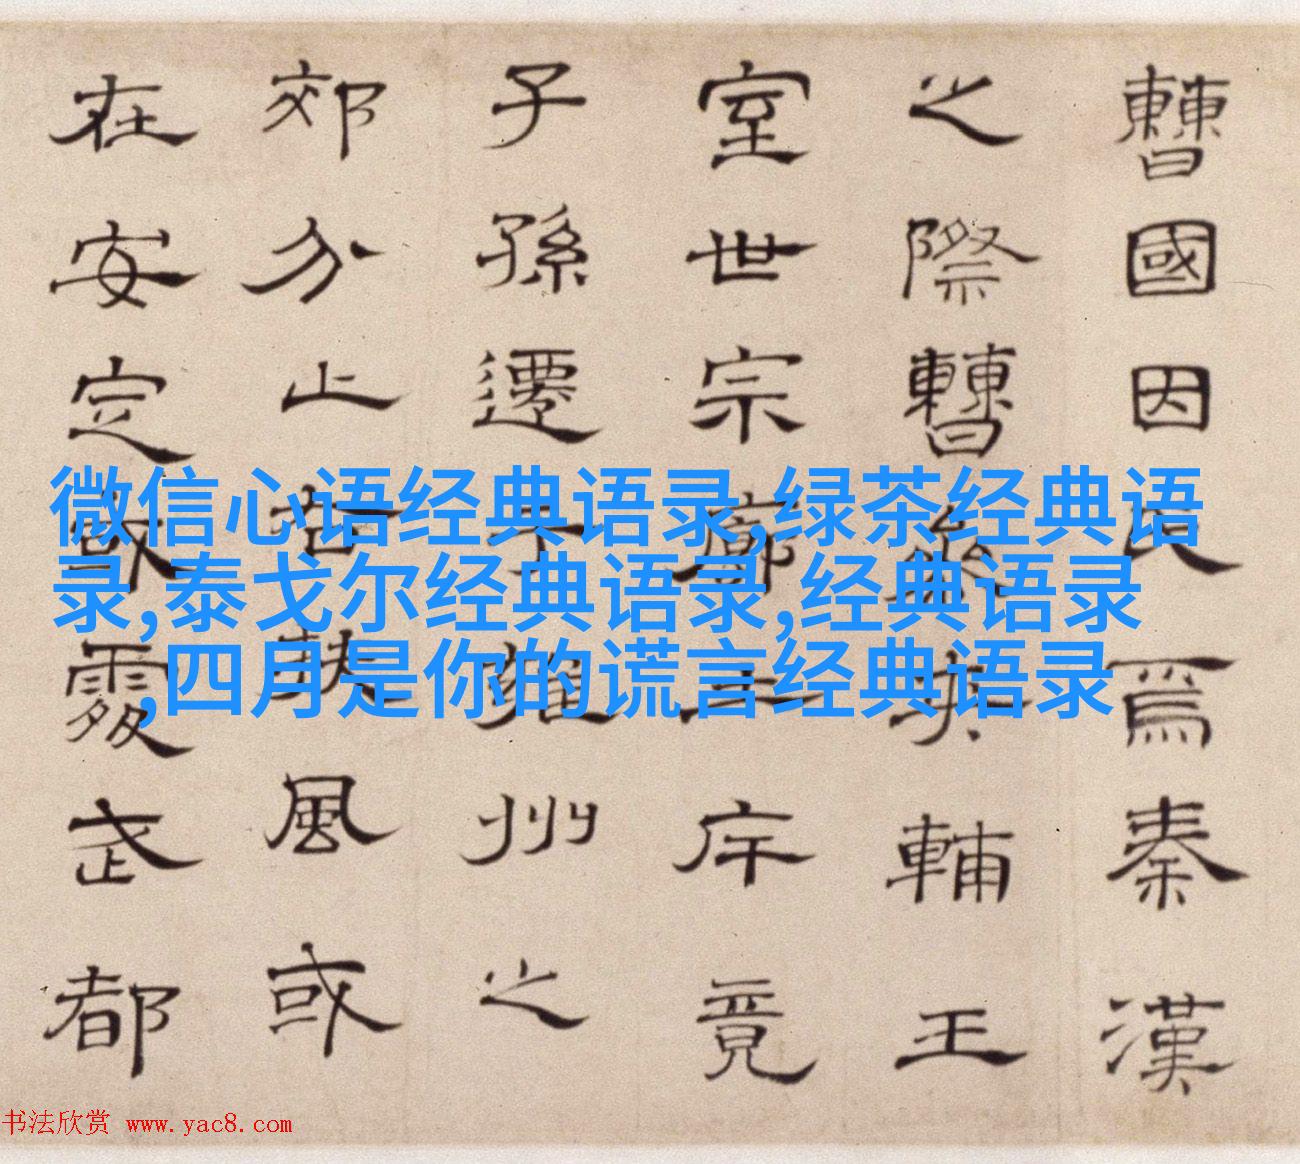 曹國因氏焉秦漢
之際曹參夾輔王
室世宗廓土斥竟
子孫遷于雍州之
郊分止右扶風或
在安定或處武都
微信心语经典语录,绿茶经典语
录,泰戈尔经典语录,经典语录
,四月是你的谎言经典语录
书法欣赏 www.yac8.com